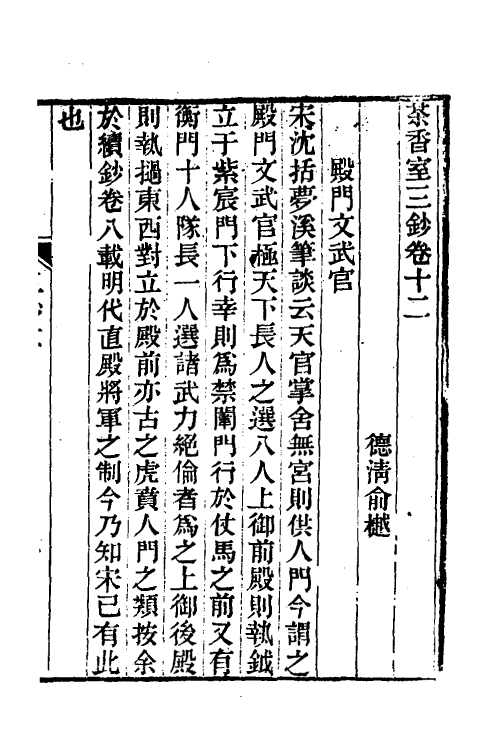 茶香室三鈔卷十二
德淸俞樾
殿門文武官
宋沈括夢溪筆談云天官掌舍無宮則供人門今謂之
殿門文武官極天下長人之選八人上御前殿則執鉞
立于紫宸門下行幸則爲禁闈門行於仗馬之前又有
衡門十人隊長一人選諸武力絕倫者爲之上御後殿
則執撾東西對立於殿前亦古之虎賁人門之類按余
於續鈔卷八載明代直殿將軍之制今乃知宋已有此
也